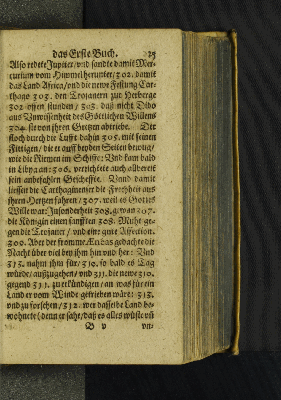 das Erste Buch. 25
Also redete Jupiter/ und sandte damit Mer-
curium vom Himmel herunter/ 302. damit
das Land Africa/ und die newe Festung Car-
thago 303. den Trojanern zur Herberge
302. offen stunden/ 303. daß nicht Dido
aus Unwissenheit des Göttlichen Willens
304. sie von ihren Grentzen abtriebe. Der
floch durch die Lufft dahin 305. mit seinen
Fittigen/ die er auff beyden Seiten bewug/
wie die Riemen im Schiffe: Und kam bald
in Libyaan: 306. verrichtete auch albereit
sein anbefohlen Geschefte. Unnd damit
liessen die Carthaginenser die Freyheit aus
ihren Hertzen fahren/ 307. weil es Gottes
Wille war: Insonderheit 308. gewan 207.
die Königin einen sanfften 308. Muht ge-
gen die Trojaner/ und eine gute Affection.
300. Aber der fromme Æneas gedachte die
Nacht über viel bey ihm hin und her: Und
313. nahm ihm für/ 310. so bald es Tag
würde/ auffzugehen/ und 311. die newe 310.
gegend 311. zu erkündigen/ an was für ein
Land er vom Winde getrieben wäre: 313.
und zu forschen/ 312. wer dasselbe Land be-
wohnete (denn er sahe/ daß es alles wüste uñ
B v un-